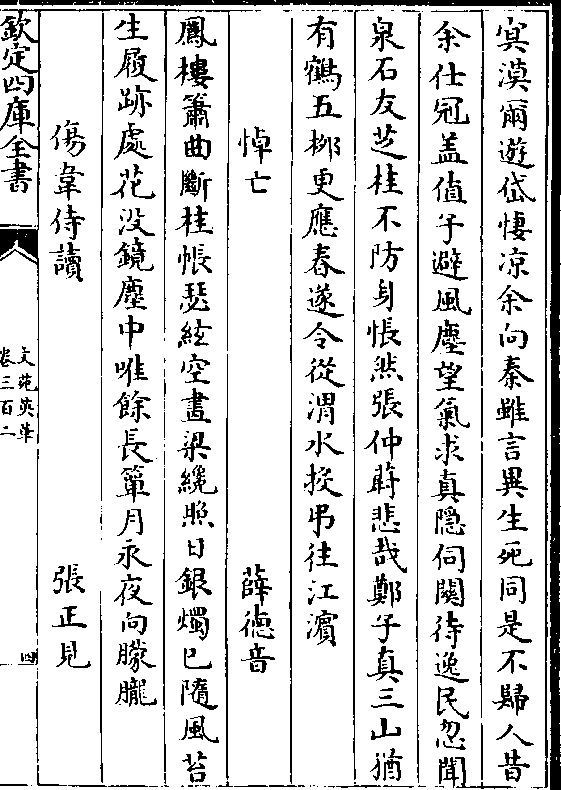 㝠漠爾遊岱悽凉余向秦雖言異生死同是不歸人昔
余仕冠盖值子避風塵望氣求真隠伺關待逸民忽聞
泉石友芝桂不防身悵然張仲蔚悲哉鄭子真三山猶
有鶴五栁更應春遂令從渭水投弔往江濱
悼亡 薛德音
鳳樓簫曲斷桂帳瑟絃空畫梁纔照日銀燭已隨風苔
生履跡處花沒鏡塵中唯餘長簟月永夜向朦朧
傷韋侍讀 張正見
欽定四庫全書 文苑英華 卷三百二 四